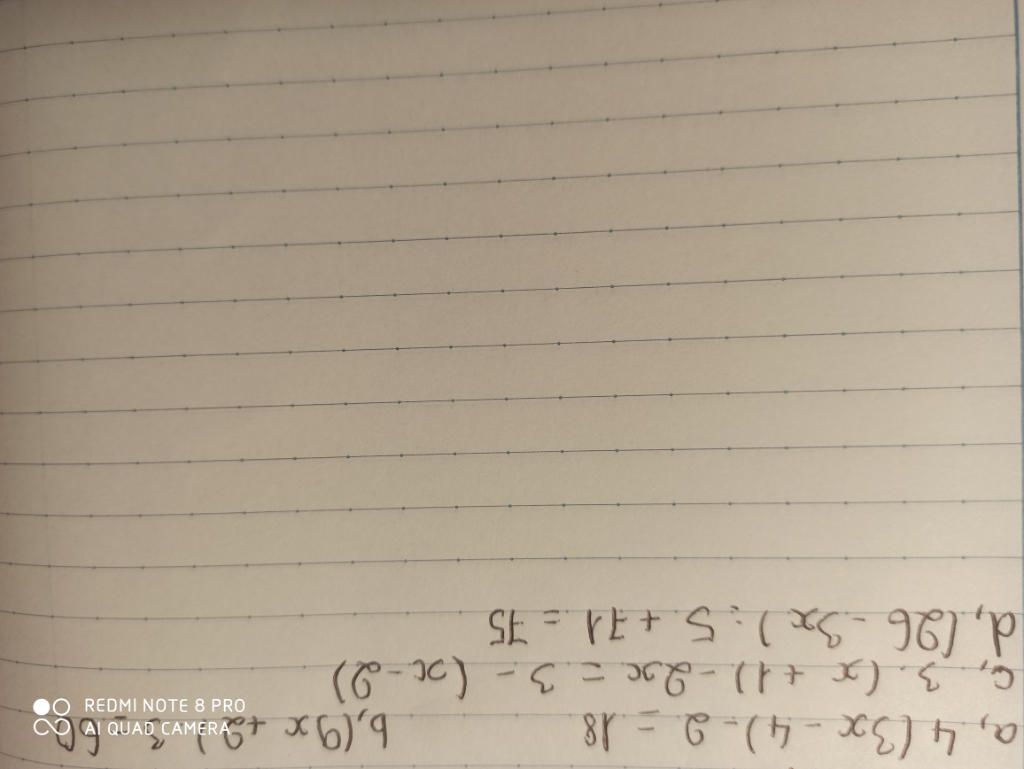 a, 4 (3x - 4) - 2 = 18 b, (9x + 2) . 3 = 60
c, 3. (x + 1) - 2x = 3 - (x - 2)
d, (26 - 3x) : 5 + 71 = 75
REDMI NOTE 8 PRO
AI QUAD CAMERA